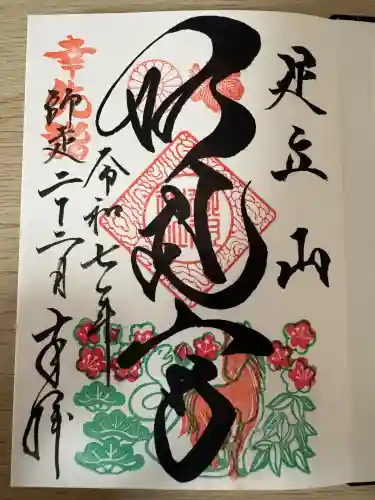 足立山
妙見宮
令和七年
師走二十二日
奉拝
幸先詣